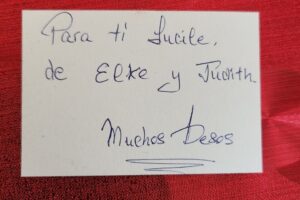 Para ti Lucile,
de Elke y Judith
Muchos Besos